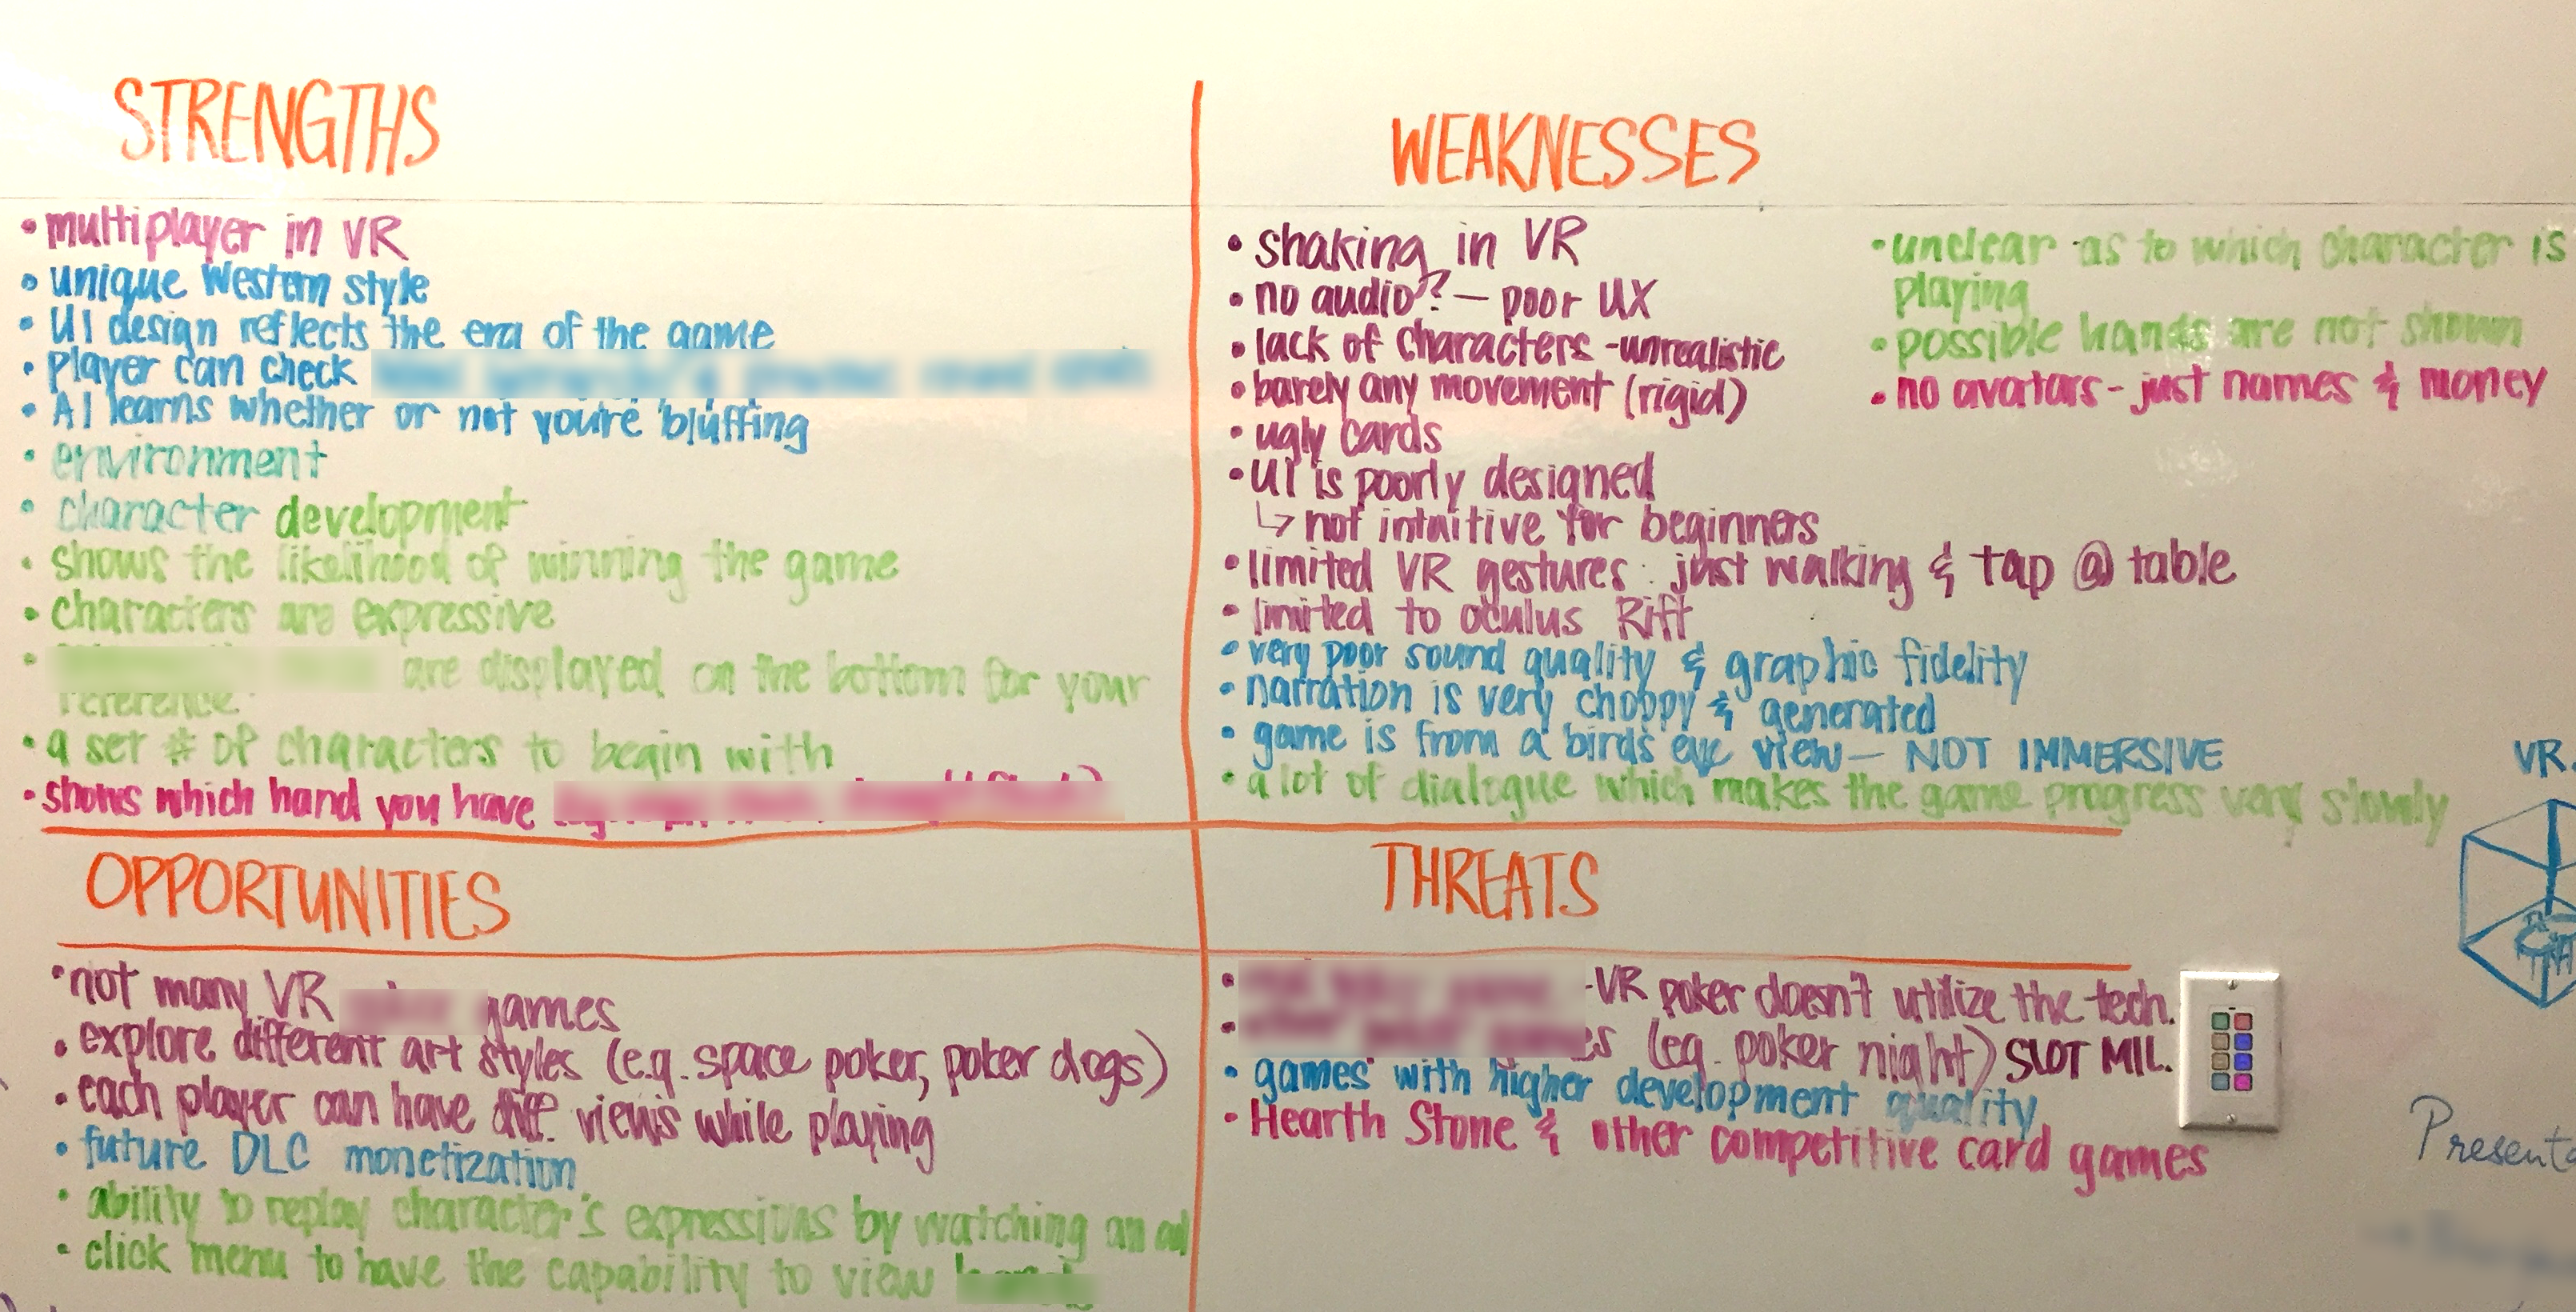 STRENGTHS
• multiplayer in VR
• unique Western style
• UI design reflects the era of the game
• player can check
• AI learns whether or not you're bluffing
• environment
• character development
• shows the likelihood of winning the game
• characters are expressive
• are displayed on the bottom for your
reference
• a set # of characters to begin with
• shows which hand you have
WEAKNESSES
• shaking in VR
• no audio? — poor UX
• lack of characters - unrealistic
• barely any movement (rigid)
• ugly cards
• UI is poorly designed
↳ not intuitive for beginners
• limited VR gestures: just walking & tap @ table
• limited to oculus Rift
• very poor sound quality & graphic fidelity
• narration is very choppy & generated
• game is from a birds eye view — NOT IMMERSIVE
• a lot of dialogue which makes the game progress very slowly
• unclear as to which character is
playing
• possible hands are not shown
• no avatars - just names & money
OPPORTUNITIES
• not many VR games
• explore different art styles (e.g. space poker, poker dogs)
• each player can have diff. views while playing
• future DLC monetization
• ability to replay character's expressions by watching an ad
• click menu to have the capability to view
THREATS
• - VR poker doesn't utilize the tech.
• (eg. poker night) SLOT MIL.
• games with higher development quality
• Hearth Stone & other competitive card games
VR.